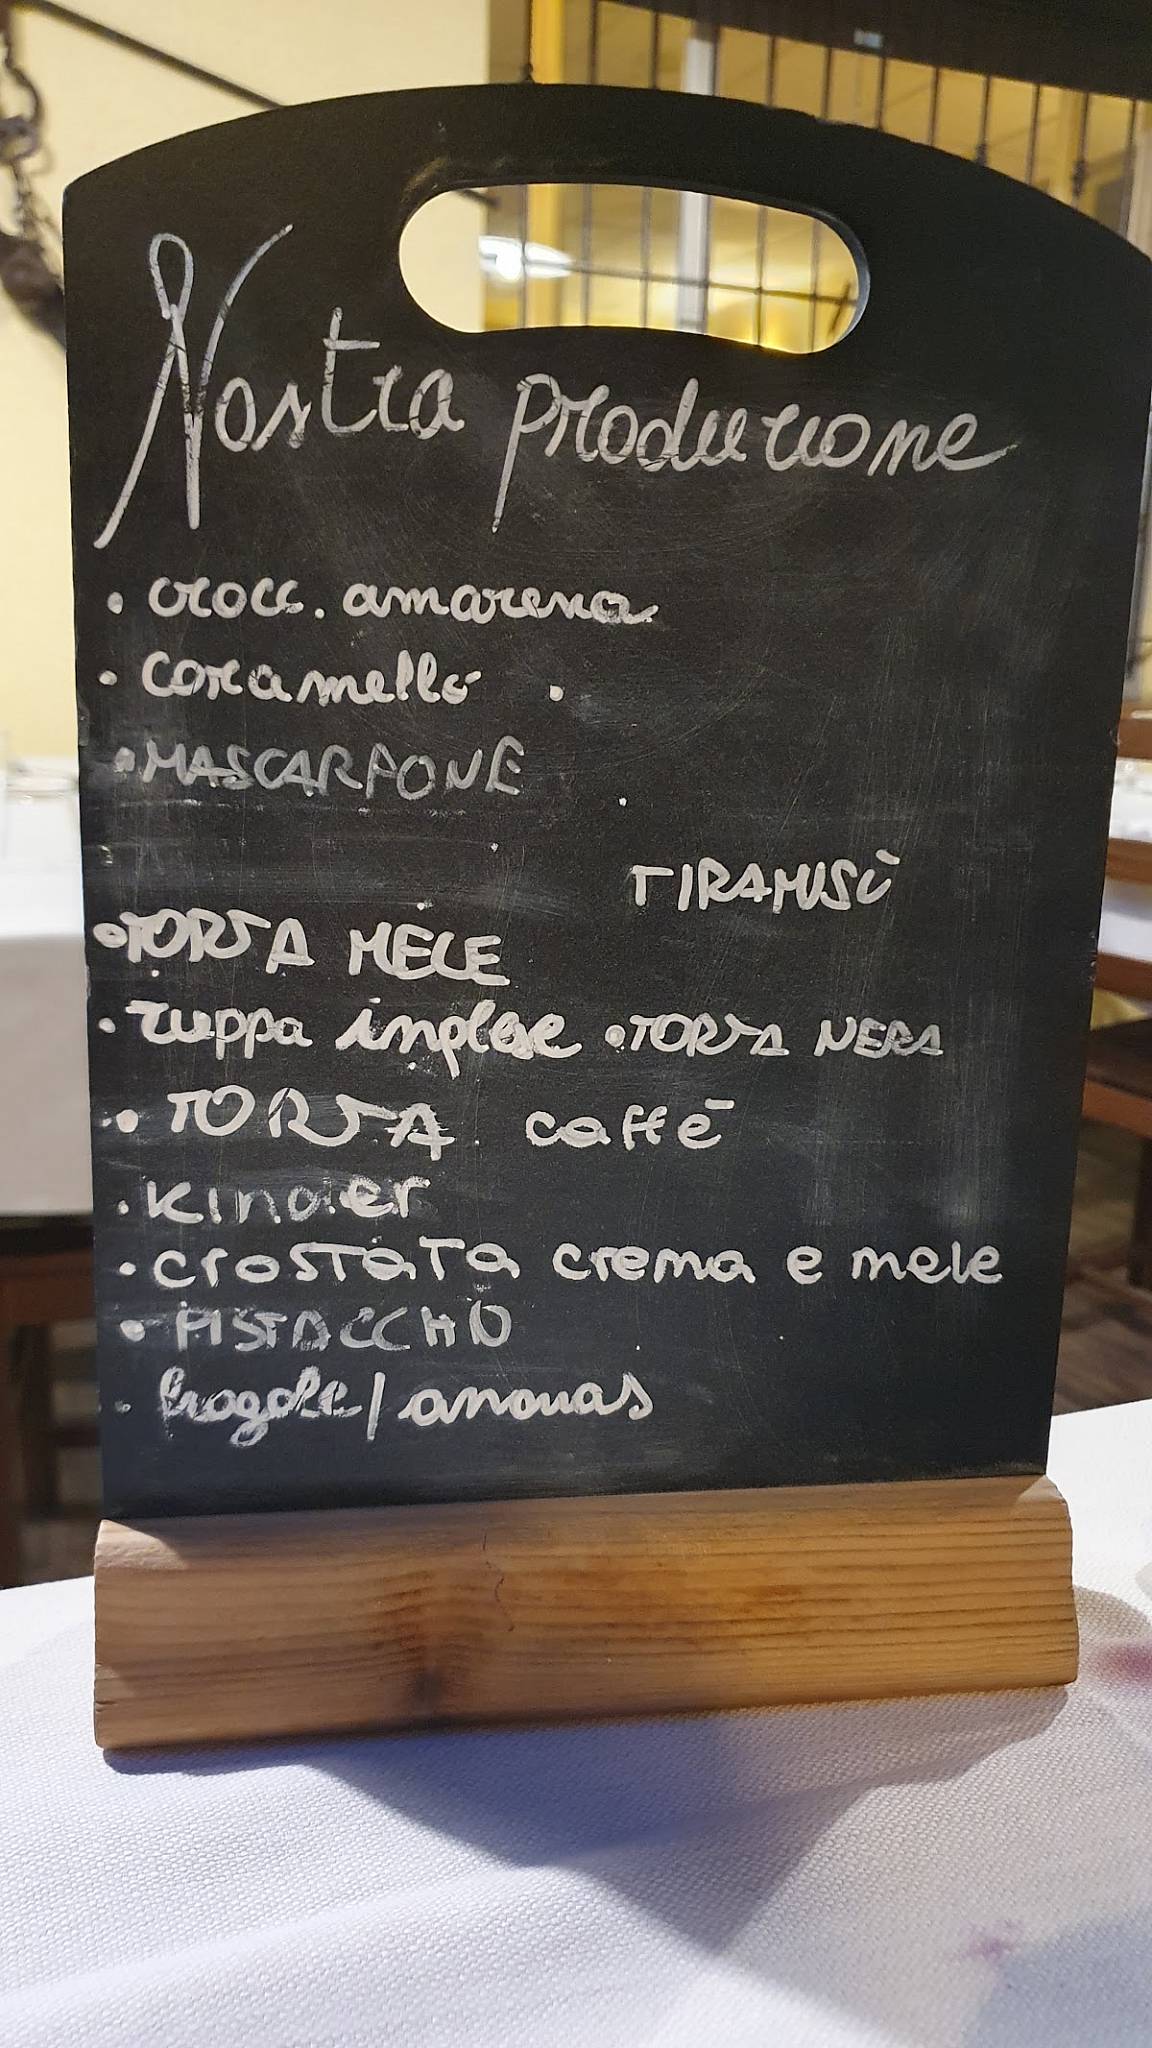 Nostra produzione
• crocc. amarena
• caramello •
• MASCARPONE
TIRAMISÙ
• TORTA MELE
• zuppa inglese • TORTA NERA
• TORTA caffè
• kinder
• crostata crema e mele
• PISTACCHIO
• fragole/ananas